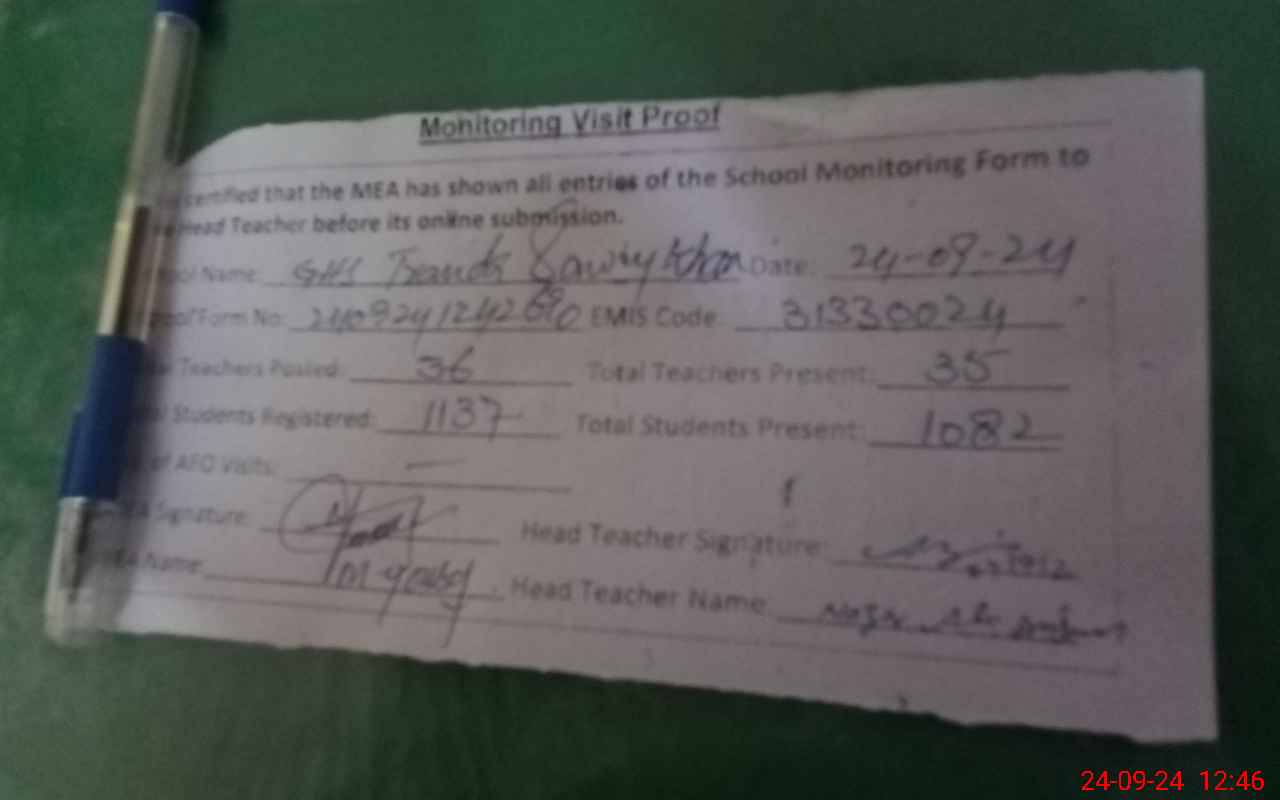 Monitoring Visit Proof
certified that the MEA has shown all entries of the School Monitoring Form to
Head Teacher before its online submission.
Name: GHS Khan Date: 24-09-24
Form No: 2409241242690 EMIS Code 31330024
Teachers Posted: 36 Total Teachers Present: 35
Students Registered: 1137 Total Students Present: 1082
of AEO Visits: —
Signature: Head Teacher Signature:
Name Head Teacher Name
24-09-24 12:46